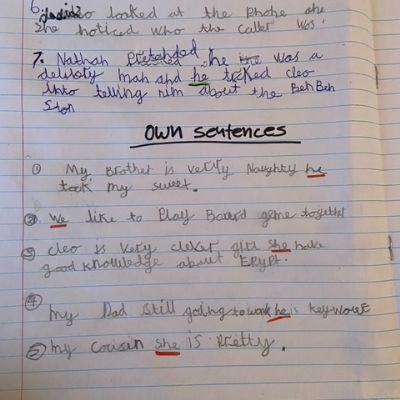 looked at the Phone she
She noticed who the caller was.
7. Nathan Pretended he was a
delivoty man and he tcked cleo
into telling nim about the Ben Ben
Ston
OWN sentences
① My Brother is verty Naughty he
took my sweet.
② We like to Play Board geme together
③ cleo is very clever girl she have
good knowledge about Egypt.
④
my Dad still going to work he is key worke
⑤ my cousin she is pretty.